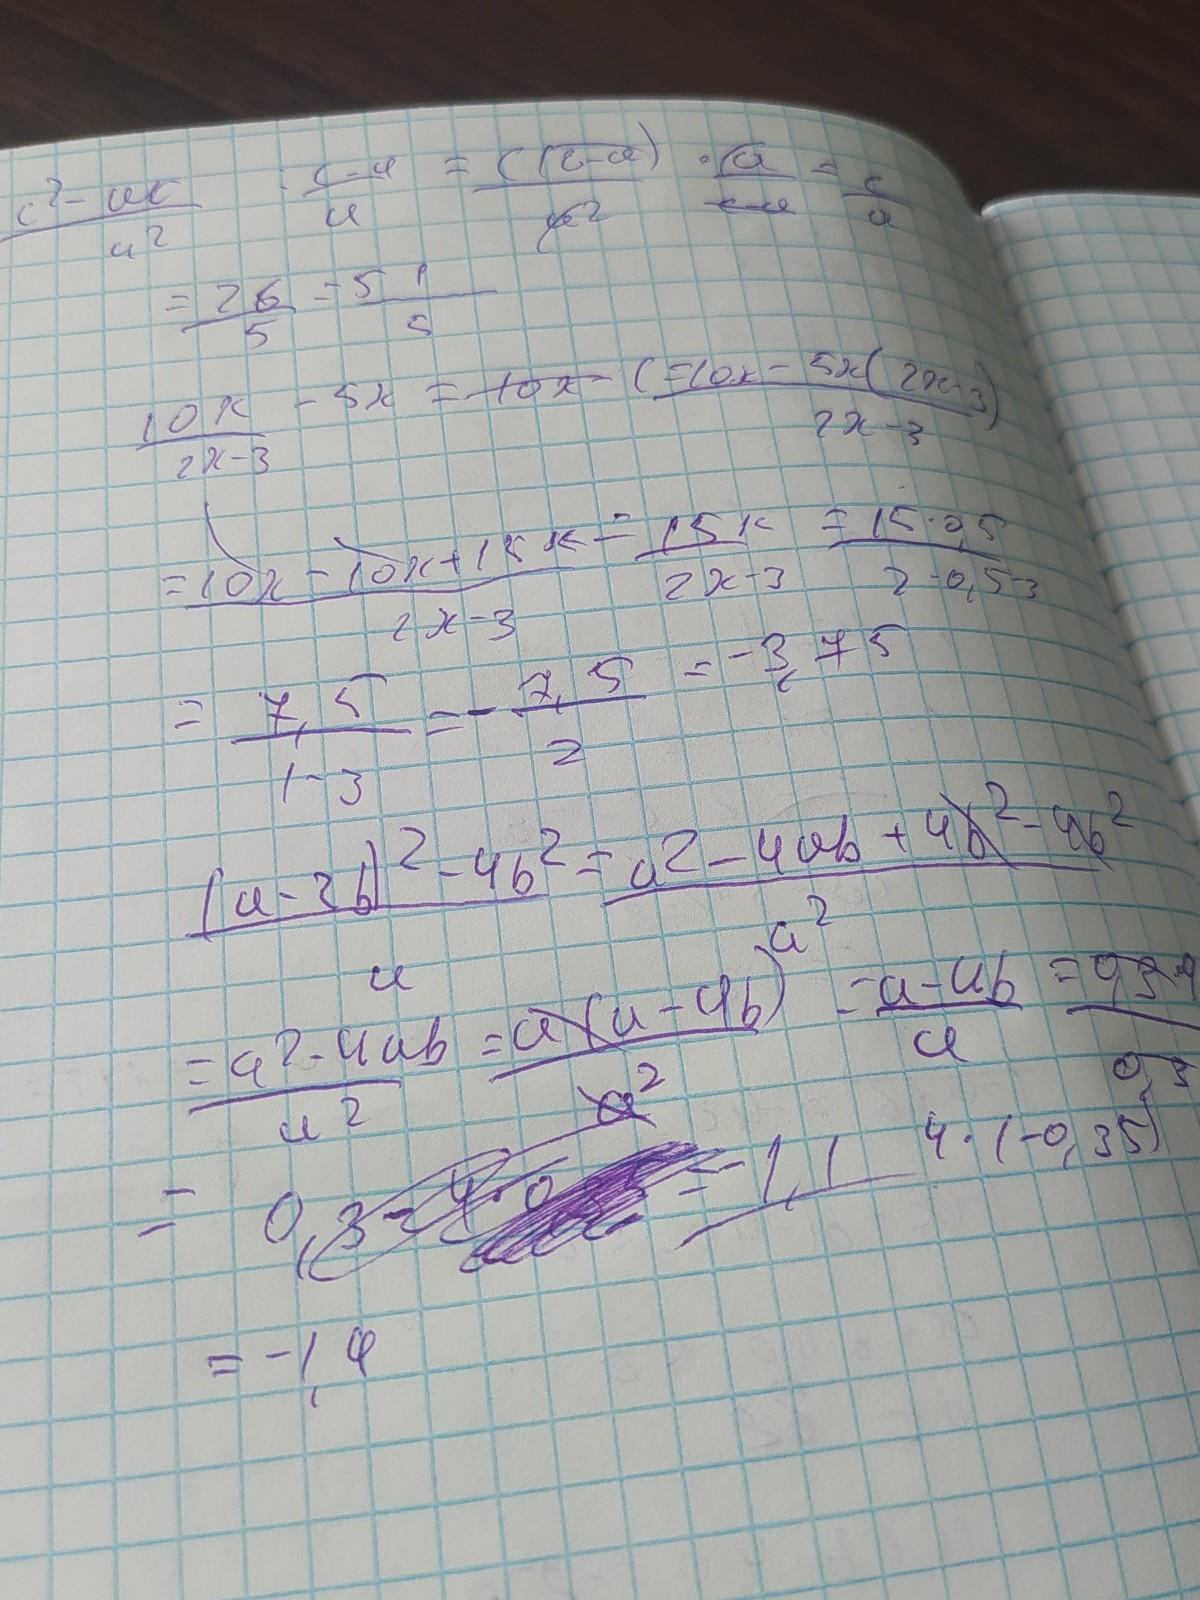 c² - ac / a² : c - a / a = c(c - a) / a² · a / c - a = c / a
= 26 / 5 = 5 1 / 5
10x / 2x - 3 - 5x = 10x - ( = 10x - 5x(2x - 3) / 2x - 3
= 10x - 10x + 15x / 2x - 3 = 15x / 2x - 3 = 15 · 0,5 / 2 · 0,5 - 3
= 7,5 / 1 - 3 = - 7,5 / 2 = -3,75
(a - 2b)² - 4b² / a = a² - 4ab + 4b² - 4b² / a²
= a² - 4ab / a² = a(a - 4b) / a² = a - 4b / a = 0,3 - 4 / 0,3
4 · (-0,35)
= 0,3 - 4 · 0 = -1,1
= -1,4